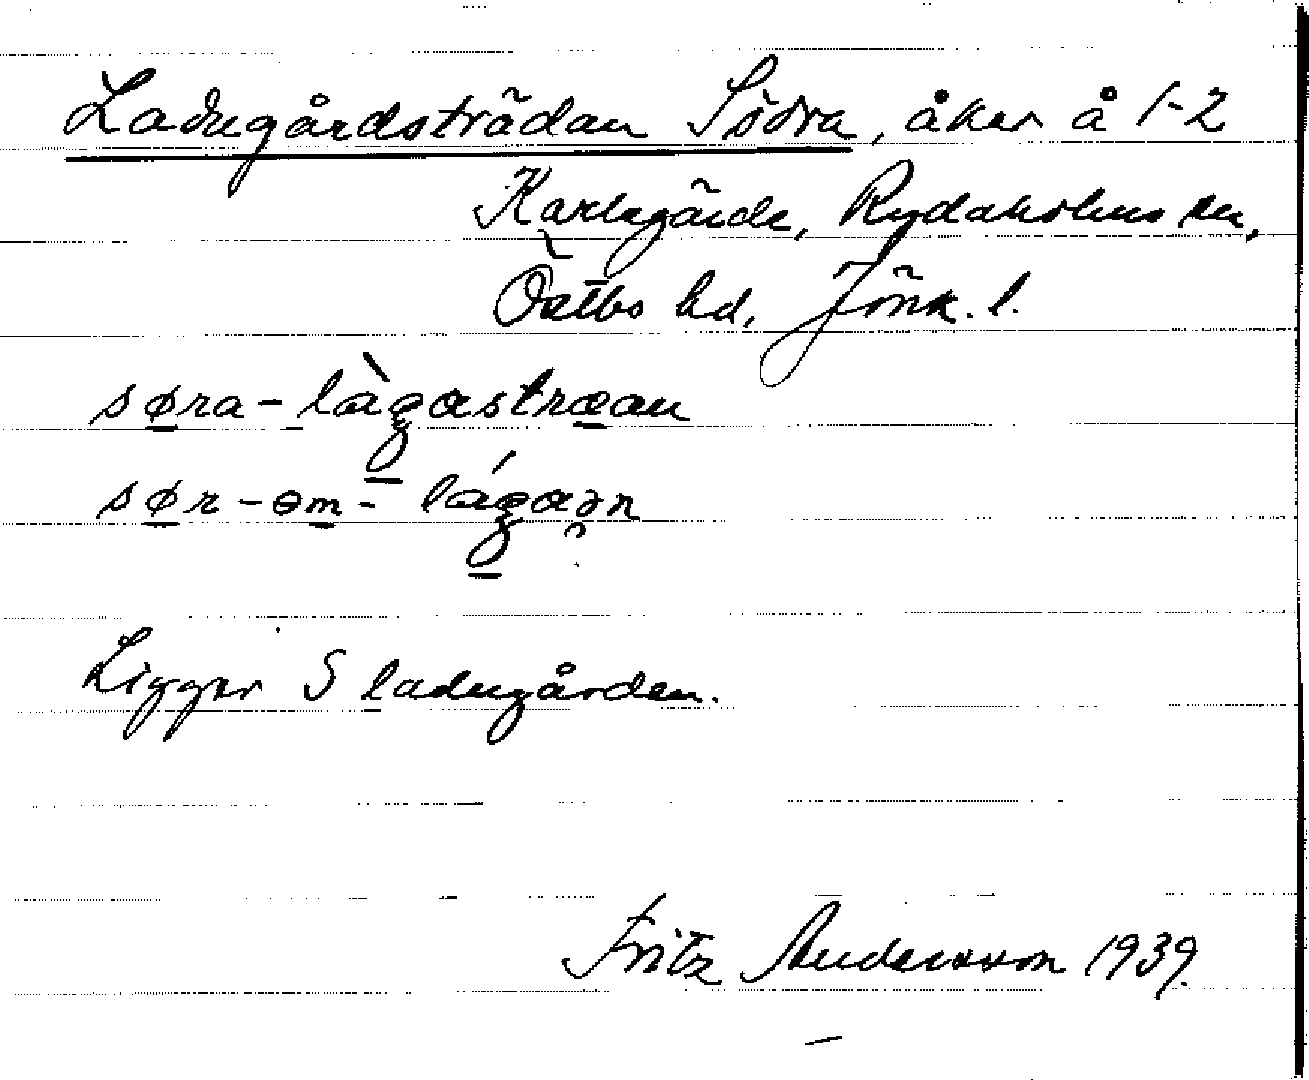 Ladugårdsträdan Södra, åker å 1-2
Karlsgärde, Rydaholms sn,
Östbo hd, Jönk. l.
søra-làgastræan
sør-om-lágaən
Ligger S ladugården.
Fritz Andersson 1939.